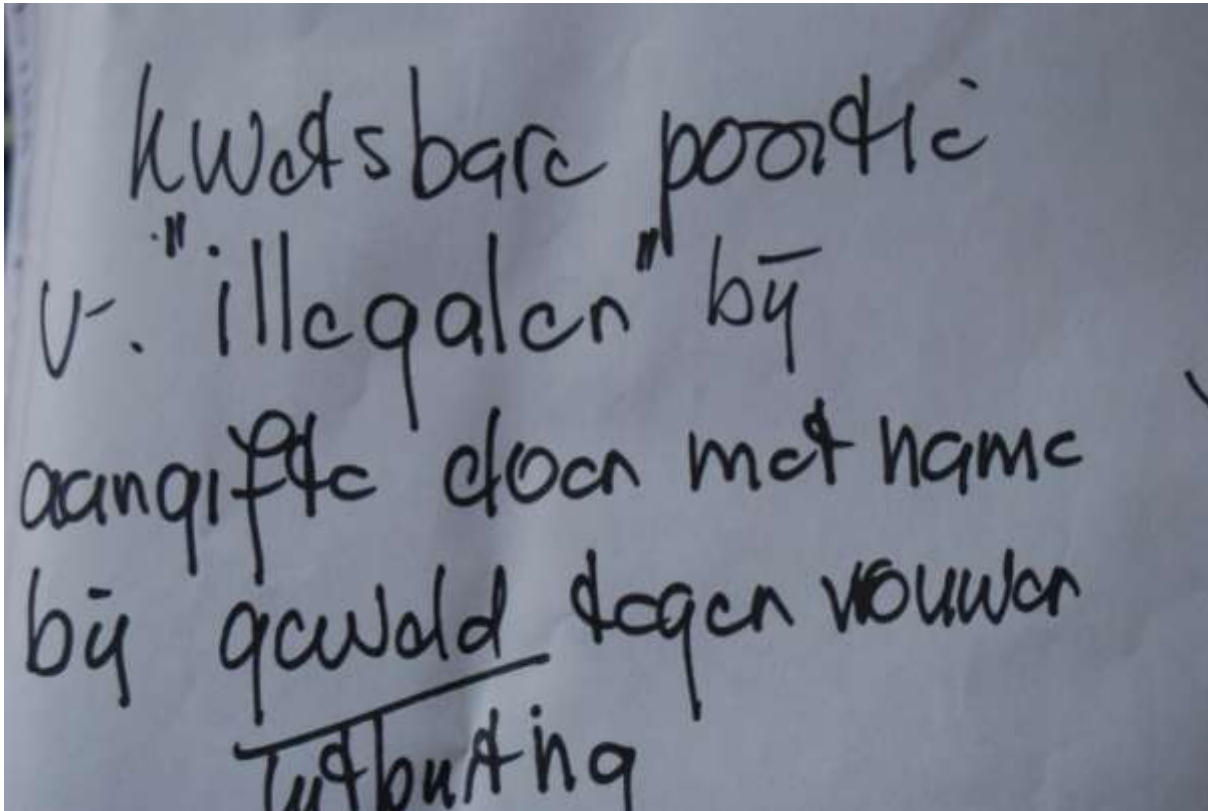 kwetsbare positie
v. "illegalen" bij
aangifte doen met name
bij geweld tegen vrouwen
/uitbuiting